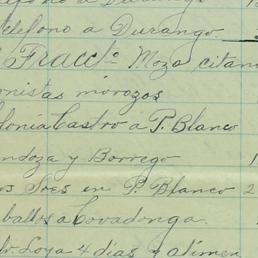 no a Durango
telefono a Durango.
Fracc<sup>to</sup> Moza citan
onistas morozos
lonia Castro a P. Blanco
ndoza y Borrego 1
os Sres en P. Blanco 2
ballos a Covadonga.
Loya 4 dias y alimen